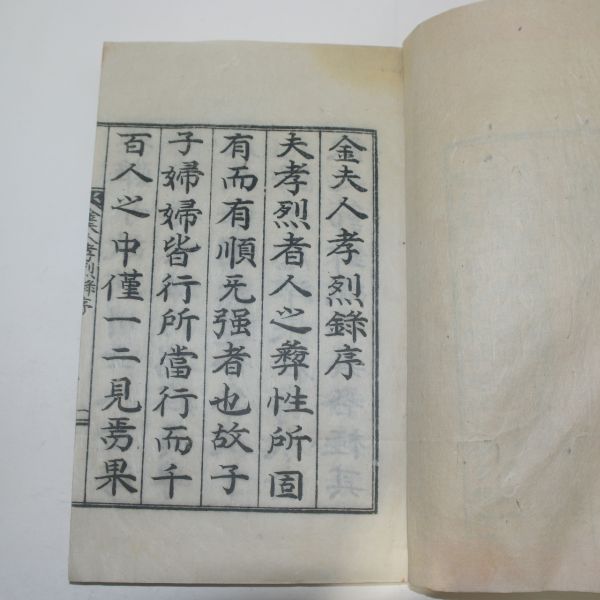 金夫人孝烈錄序
夫孝烈者人之彝性所固
有而有順旡强者也故子
子婦婦皆行所當行而千
百人之中僅一二見焉果
金夫人孝烈錄序